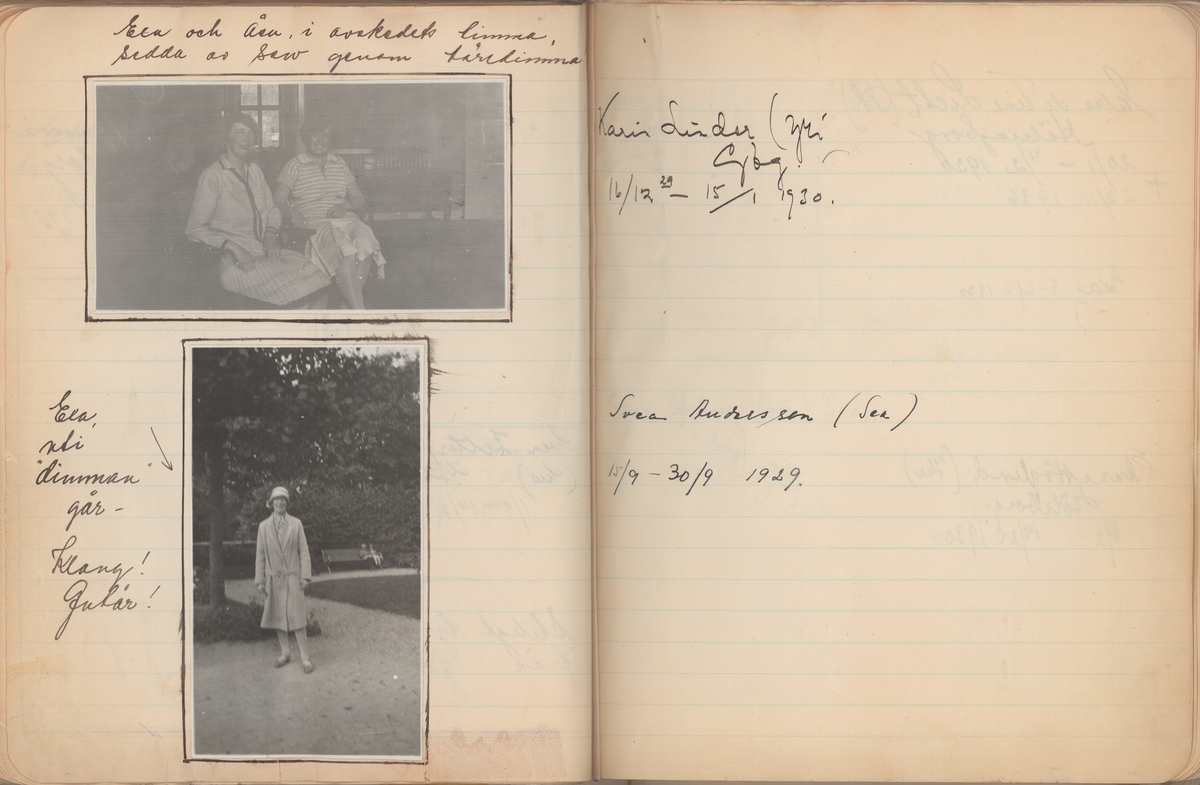 Ela och Åsa, i avskedets timma,
sedda av Saw genom tåredimma
Ela,
uti
"dimman"
går -
Klang!
Gutår!
Karin Linder (Yri
Gbg.
16/12 29 - 15/1 1930.
Svea Andersson (Sea)
15/9 - 30/9 1929.